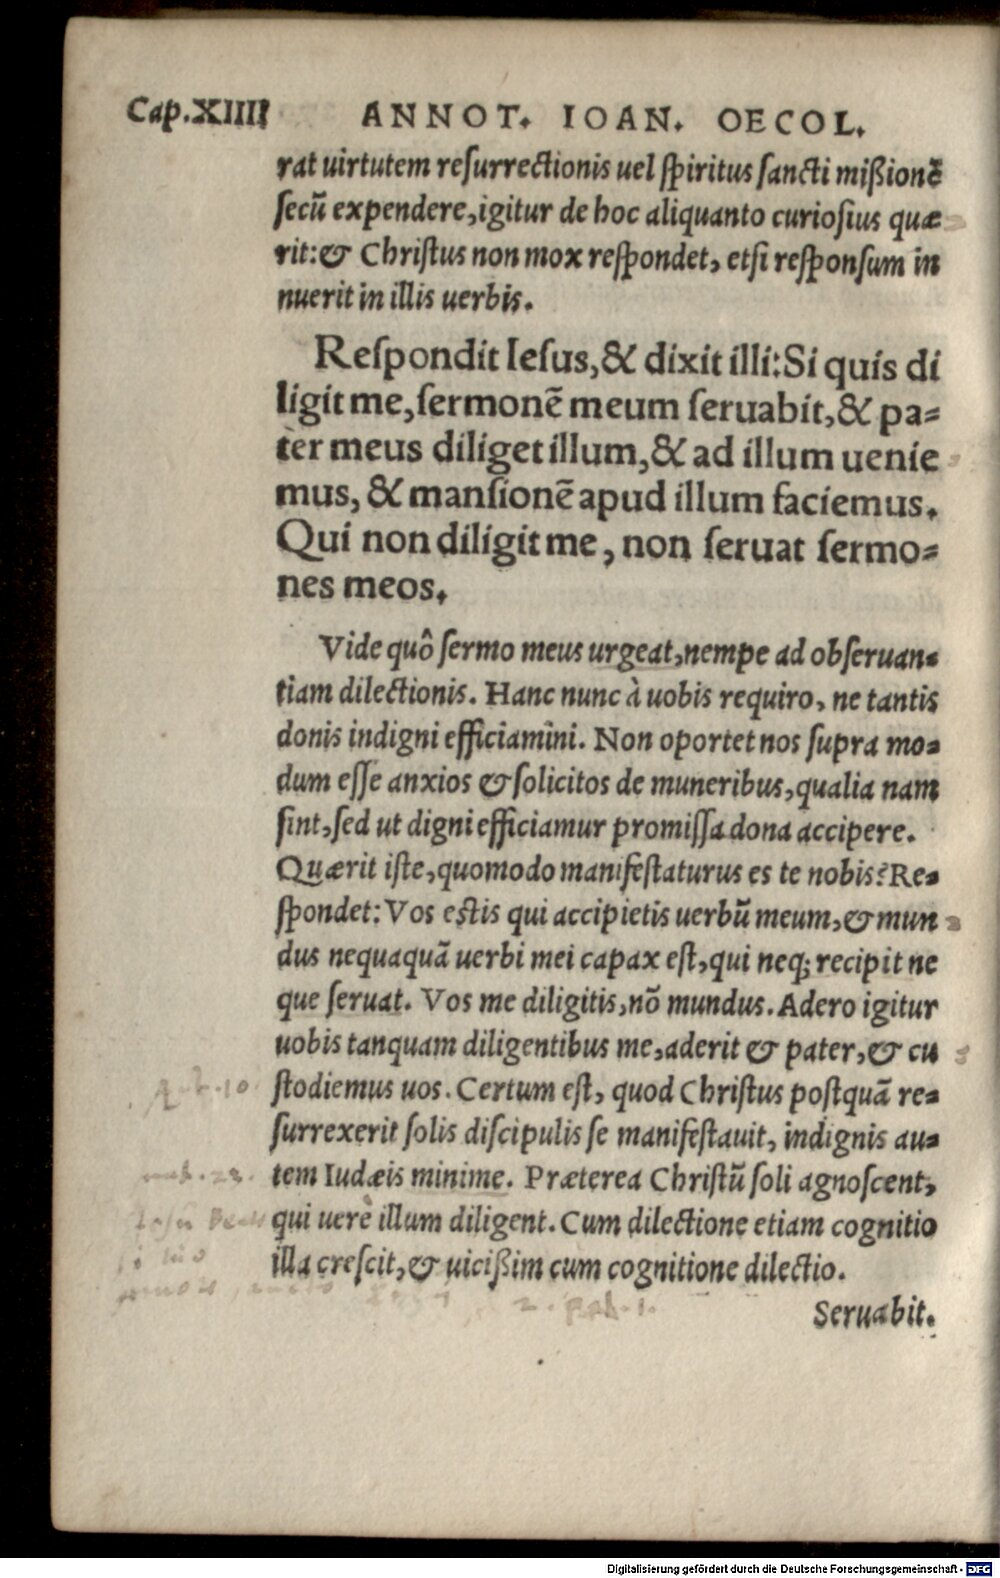 Cap.XIIII ANNOT. IOAN. OECOL.
rat uirtutem resurrectionis uel spiritus sancti mißionẽ
secũ expendere, igitur de hoc aliquanto curiosius quæ
rit: & Christus non mox respondet, etsi responsum in
nuerit in illis uerbis.
Respondit Iesus, & dixit illi: Si quis di
ligit me, sermonẽ meum seruabit, & pa=
ter meus diliget illum, & ad illum uenie
mus, & mansionẽ apud illum faciemus.
Qui non diligit me, non seruat sermo=
nes meos.
Vide quô sermo meus urgeat, nempe ad obseruan=
tiam dilectionis. Hanc nunc à uobis requiro, ne tantis
donis indigni efficiamini. Non oportet nos supra mo=
dum esse anxios & solicitos de muneribus, qualia nam
sint, sed ut digni efficiamur promissa dona accipere.
Quærit iste, quomodo manifestaturus es te nobis? Re=
spondet: Vos estis qui accipietis uerbũ meum, & mun
dus nequaquã uerbi mei capax est, qui neq; recipit ne
que seruat. Vos me diligitis, nõ mundus. Adero igitur
uobis tanquam diligentibus me, aderit & pater, & cu
stodiemus uos. Certum est, quod Christus postquã re=
surrexerit solis discipulis se manifestauit, indignis au=
tem Iudæis minime. Præterea Christũ soli agnoscent,
qui uerè illum diligent. Cum dilectione etiam cognitio
illa crescit, & uicißim cum cognitione dilectio.
Seruabit.
Digitalisierung gefördert durch die Deutsche Forschungsgemeinschaft - DFG